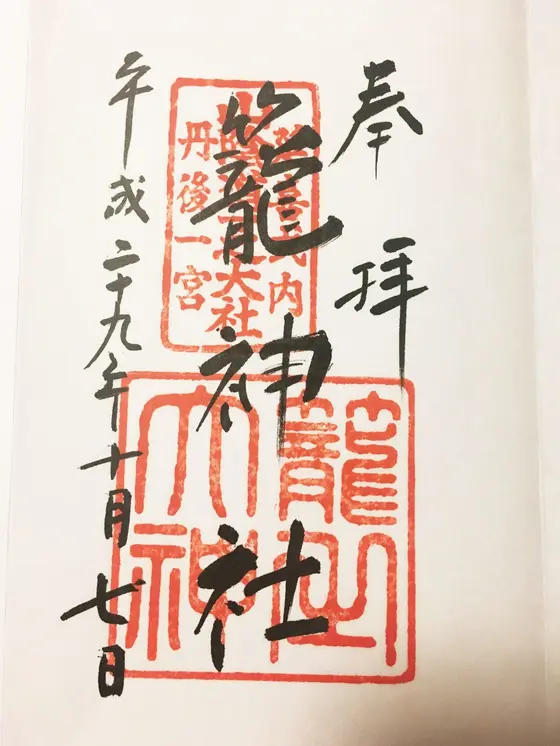 奉拝
延喜式内
大社
丹後一宮
籠神社
大神
平成二十九年十月七日